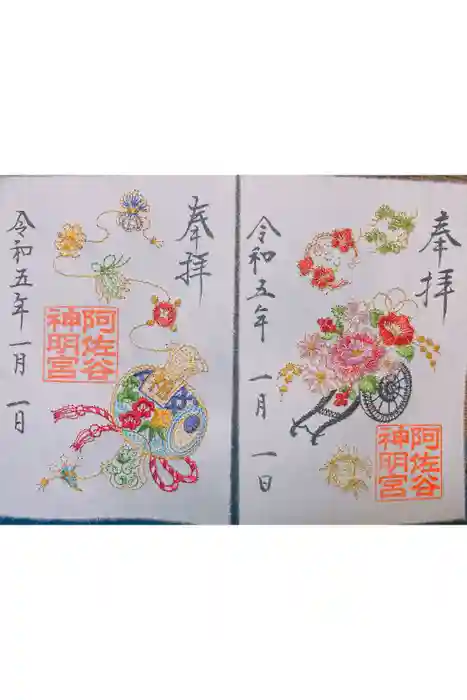 奉拝
阿佐谷
神明宮
令和五年 一月 一日
奉拝
阿佐谷
神明宮
令和五年 一月 一日